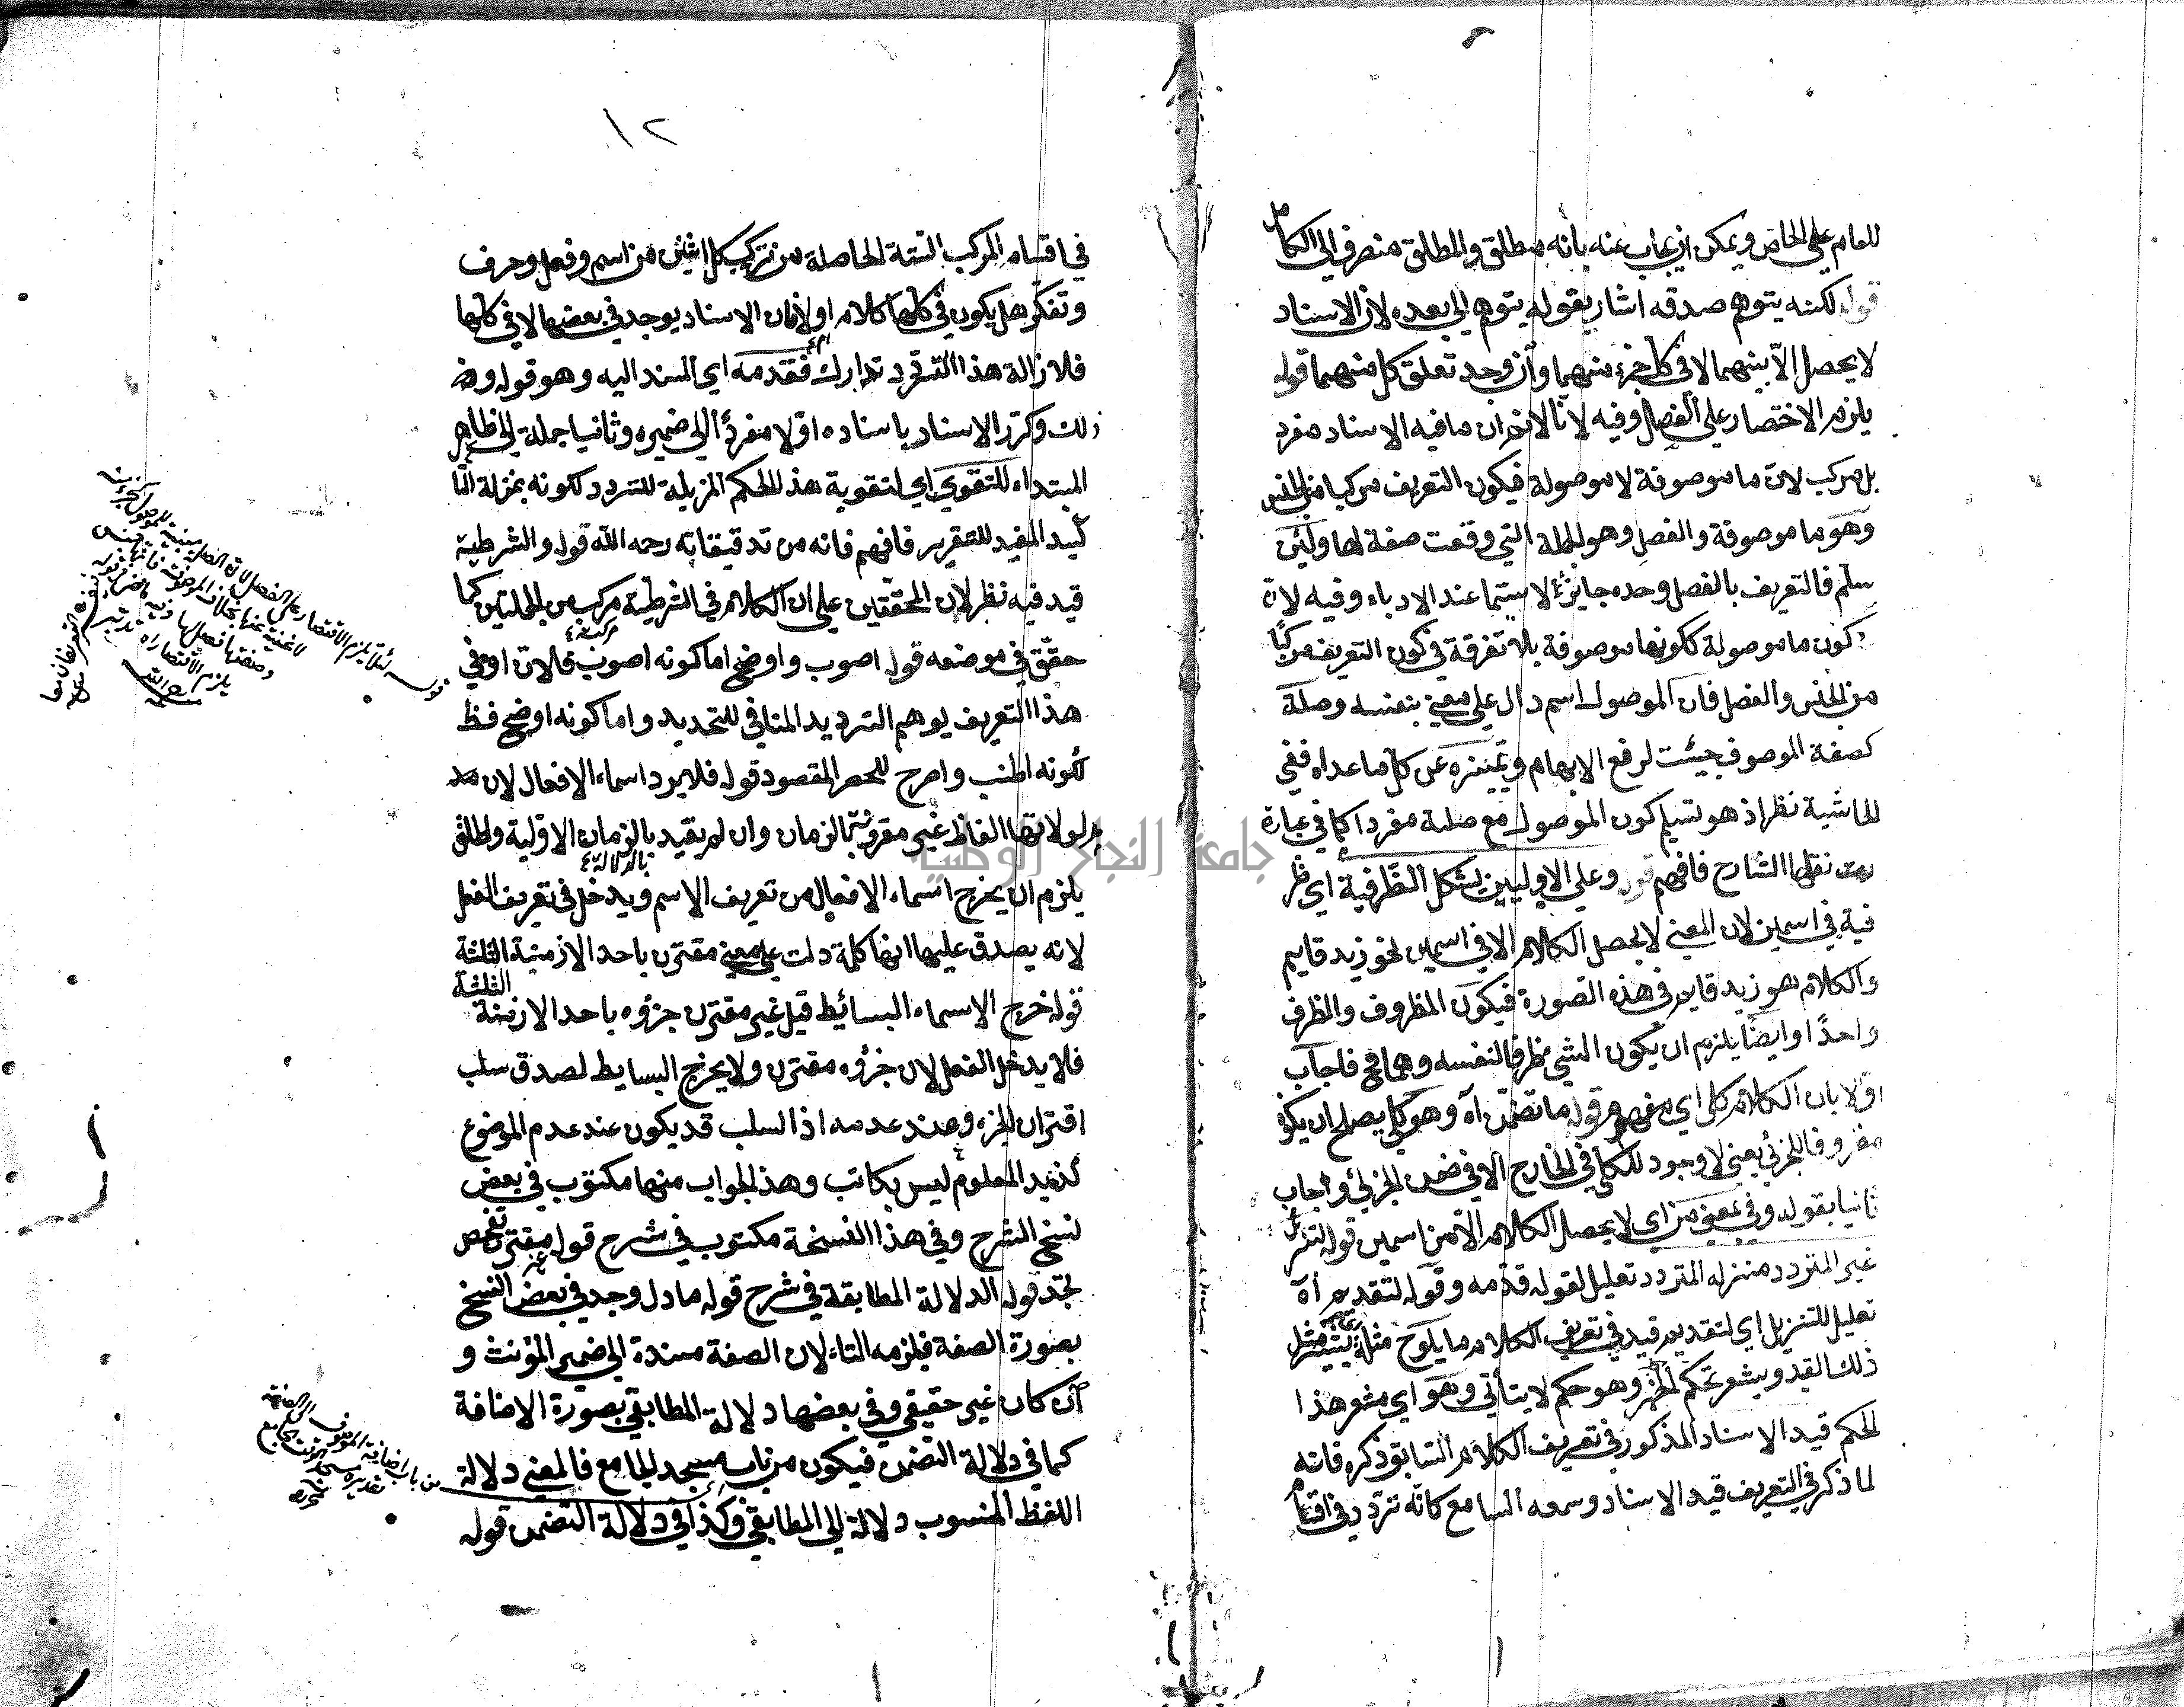 للعام على الخاص ويمكن ان يجاب عنه بانه مطلق والمطلق منصرف الى الكامل
قوله لكنه يتوهم صدقه اشار بقوله يتوهم الى بعده لان الاسناد
لا يحصل الا بينهما لا في كل جزء منهما وان وجد تعلق كل منهما قوله
يلزم الاختصار على الفصل وفيه لانا لا نم ان ما فيه الاسناد مفرد
بل مركب لان ما موصوفة لا موصولة فيكون التعريف مركبا من الجنس
وهو ما موصوفة والفصل وهو الجملة التي وقعت صفة لها ولئن
سلم فالتعريف بالفصل وحده جايز لا سيما عند الادباء وفيه لان
كون ما موصولة ككونها موصوفة بلا تفرقة في كون التعريف مركبا
من الجنس والفصل فان الموصول اسم دال على معنى بنفسه وصلة
كصفة الموصوف جيئت لرفع الابهام وتمييزه عن كل ما عداه ففي
الحاشية نظر اذ هو تسليم كون الموصول مع صلته مفردا كما في عبارة
نقلها الشارح فافهم قوله وعلى الاوليين يشكل الظرفية اي ظر
فية في اسمين لان المعنى لا يحصل الكلام الا في اسمين نحو زيد قايم
والكلام هو زيد قايم في هذه الصورة فيكون المظروف والظرف
واحدًا وايضًا يلزم ان يكون الشي ظرفا لنفسه وهما مح فاجاب
اولا بان الكلام كلي اي مفهوم قوله ما تضمن اه وهو كلي يصلح ان يكون
مظروفا للجزئي يعني لا وجود للكلي في الخارج الا في ضمن الجزئي واجاب
ثانيا بقوله وفي بمعنى من اي لا يحصل الكلام الا من اسمين قوله لتنزيل
غير المتردد منزله المتردد تعليل لقوله قدمه وقوله لتقدم اه
تعليل للتنزيل اي لتقديم قيد في تعريف الكلام ما يلوح مثله
ذلك القيد ويشعر بحكم الخبر وهو حكم لا يتأتى وهو اي مشعر هذا
الحكم قيد الاسناد المذكور في تعريف الكلام السابق ذكره فانه
لما ذكر في التعريف قيد الاسناد وسمعه السامع كانه تردد في اقسام
١٢
في اقسام المركب الستة الحاصلة من تركيب كل اثنين من اسم وفعل وحرف
وتفكر هل يكون في كلها كلام او لا فان الاسناد يوجد في بعضها لا في كلها
فلازالة هذا التردد تدارك فقدمه اي المسند اليه وهو قوله و
ذلك وكرر الاسناد باسناده اولا مفردًا الى ضميره وثانيا جملة الى ظاهر
المبتداء للتقوي اي لتقوية هذا الحكم المزيلة للتردد لكونه بمنزلة التا
كيد المفيد للتقرير فافهم فانه من تدقيقاته رحمه الله قوله والشرطية
قيد فيه نظر لان المحققين على ان الكلام في الشرطية مركب من الجملتين كما
حقق في موضعه قوله اصوب واوضح اما كونه اصوب فلان او في
هذا التعريف يوهم الترديد المنافي للتحديد واما كونه اوضح فظ
لكونه اطنب واصرح للحصر المقصود قوله فلا يرد اسماء الافعال لان مد
لولاتها الفاظ غير مقرونة بالزمان وان لم يقيد بالزمان الاولية
بالدلالة
يلزم ان يخرج اسماء الافعال من تعريف الاسم ويدخل في تعريف الفعل
لانه يصدق عليها انها كلمة دلت على معنى مقترن باحد الازمنة الثلثة
قوله خرج الاسماء البسائط قيل غير مقترن جزؤه باحد الازمنة الثلثة
فلا يدخل الفعل لان جزؤه مقترن ولا يخرج البسايط لصدق سلب
اقتران الجزء عند عدمه اذ السلب قد يكون عند عدم الموضوع
كزيد المعلوم ليس بكاتب وهذا الجواب منها مكتوب في بعض
نسخ الشرح وفي هذا النسخة مكتوب في شرح قوله مقترن تفحص
تجد قوله الدلالة المطابقة في شرح قوله ما دل وجد في بعض النسخ
بصورة الصفة فيلزمه التاء لان الصفة مسندة الى ضمير المؤنث و
ان كان غير حقيقي وفي بعضها دلالة المطابقي بصورة الاضافة
كما في دلالة التضمن فيكون من باب مسجد الجامع فالمعنى دلالة
اللفظ المنسوب دلالة الى المطابقي وكذا في دلالة التضمن قوله
من باب اضافة الموصوف الى الصفة